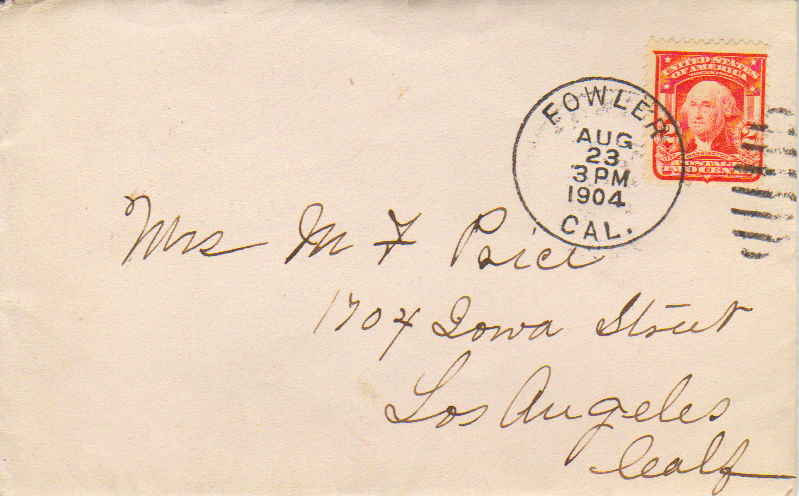 UNITED STATES
OF AMERICA
POSTAGE
TWO CENTS
FOWLER
AUG
23
3 PM
1904
CAL.
Mrs M F Price
1704 Iowa Street
Los Angeles
Calf